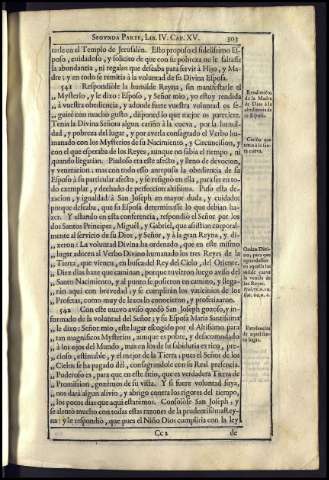 SEGVNDA PARTE, LIB. IV. CAP. XV. 303
cerle en el Templo de Jerusalèn. Esto propuso el fidelissimo Es-
poso, cuidadoso, y solicito de que con su pobreza no le faltasse
la abundancia, ni regalos que deseaba para servir à Hijo, y Ma-
dre; y en todo se remitia à la voluntad de su Divina Esposa.
541 Respondiòle la humilde Reyna, sin manifestarle el
„ Mysterio, y le dixo: Esposo, y Señor mio, yo estoy rendida
„ à vuestra obediencia, y adonde fuere vuestra voluntad os se-
„ guirè con mucho gusto, disponed lo que mejor os pareciere.
Tenia la Divina Señora algun cariño à la cueva, por la humil-
dad, y pobreza del lugar, y por averla consagrado el Verbo hu-
manado con los Mysterios de su Nacimiento, y Circuncision, y
con el que esperaba de los Reyes, aunque no sabia el tiempo, ni
quando llegarian. Piadoso era este afecto, y lleno de devocion,
y veneracion; mas con todo esso antepuso la obediencia de su
Esposo à su particular afecto, y se resignò en ella, para ser en to-
do exemplar, y dechado de perfeccion altissima. Puso esta de-
xacion, y igualdad à San Joseph en mayor duda, y cuidado;
porque deseaba, que su Esposa determinasse lo que debian ha-
zer. Y estando en esta conferencia, respondiò el Señor por los
dos Santos Principes, Miguèl, y Gabriel, que assistian corporal-
mente al servicio de su Dios, y Señor, y à la gran Reyna, y di-
„ xeron: La voluntad Divina ha ordenado, que en este mismo
„ lugar adoren al Verbo Divino humanado los tres Reyes de la
„ Tierra, que vienen, en busca del Rey del Cielo, del Oriente.
„ Diez dias hace que caminan, porque tuvieron luego aviso del
„ Santo Nacimiento, y al punto se pusieron en camino, y llega-
„ ràn aqui con brevedad; y se cumpliràn los vaticinios de los
„ Profetas, como muy de lexos lo conocieron, y profetizaron.
542 Con este nuevo aviso quedò San Joseph gozoso, y in-
formado de la voluntad del Señor; y su Esposa Maria Santissima
„ le dixo: Señor mio, este lugar escogido por el Altissimo para
„ tan magnificos Mysterios, aunque es pobre, y desacomodado
„ à los ojos del Mundo; mas en los de su Sabiduria es rico, pre-
„ cioso, estimable, y el mejor de la Tierra; pues el Señor de los
„ Cielos se ha pagado dèl, consagrandole con su Real presencia.
„ Poderoso es, para que en este sitio, que es verdadera Tierra de
„ Promission, gozèmos de su vista. Y si fuere voluntad suya,
„ nos darà algun alivio, y abrigo contra los rigores del tiempo,
„ los pocos dias que aqui estarèmos. Consolòse San Joseph, y
se alentò mucho con todas estas razones de la prudentissima Rey-
na: y le respondiò, que pues el Niño Dios cumpliria con la ley
Cc 2 de
Resolucion
de la Madre
de Dios à la
obediencia de
su Esposo.
Cariño que
tenia à la san-
ta cueva.
Orden Divi-
no, para que
aguardassen
en aquella hu-
milde cueva
la venida de
los Reyes.
Excelencias
de aquel san-
to lugar.